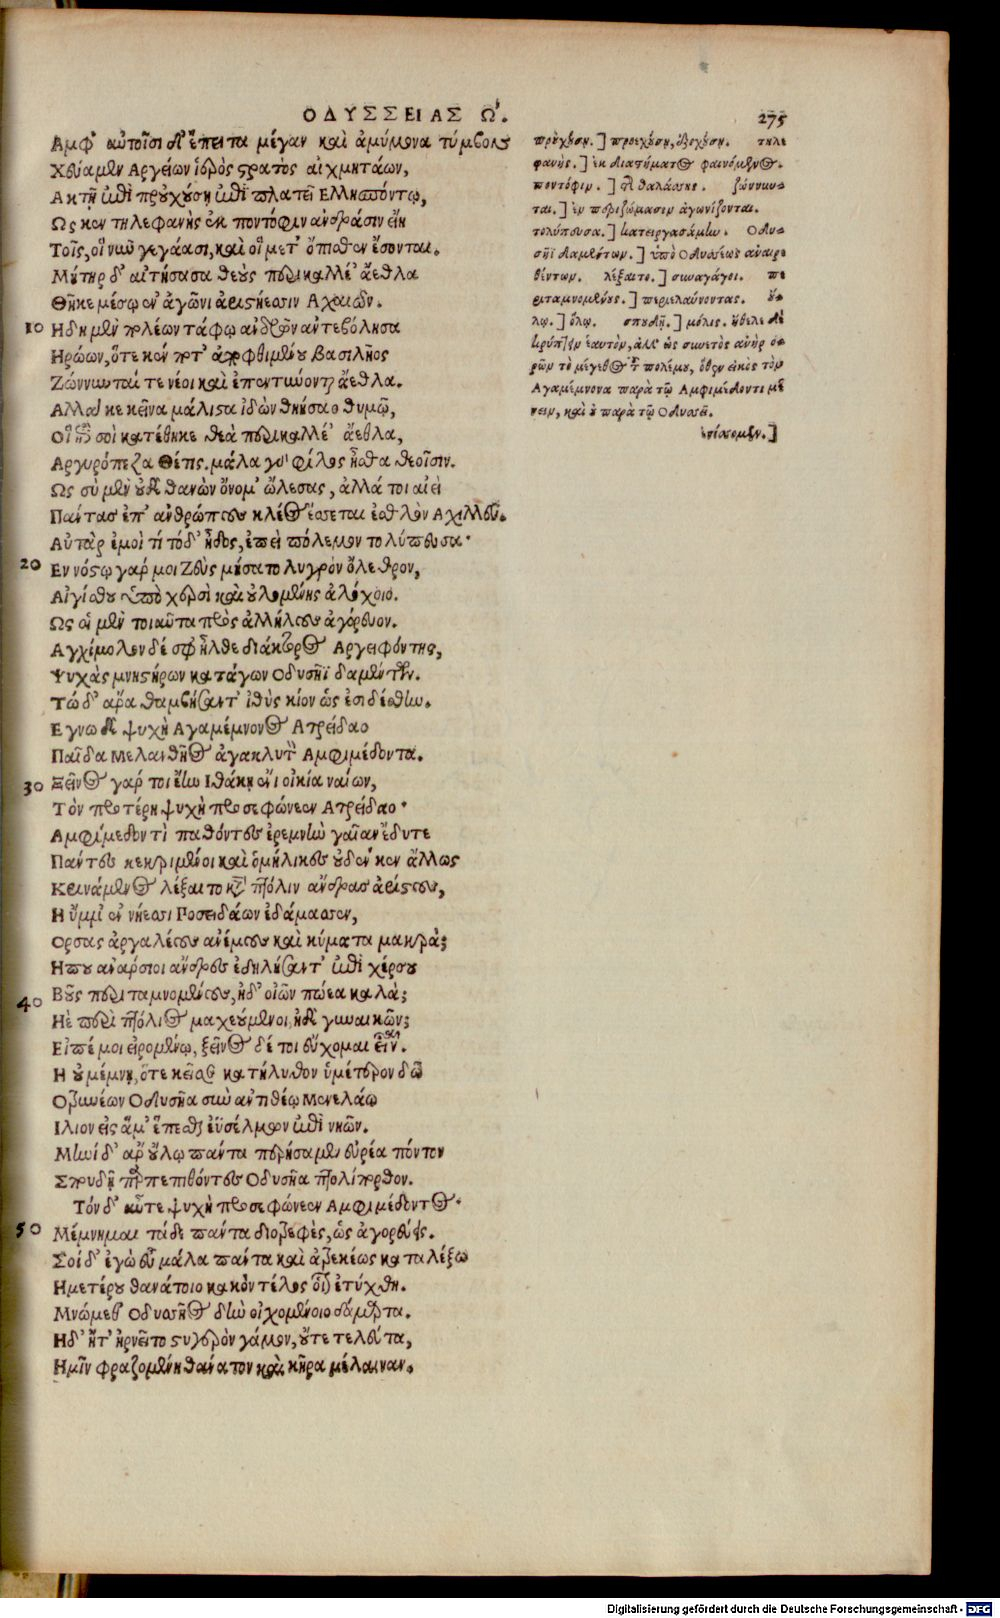 ΟΔΥΣΣΕΙΑΣ Ω.
275
Αμφ' αὐτοῖσι δ' ἔπειτα μέγαν καὶ ἀμύμονα τύμβον
Χεύαμεν Αργείων ἱερὸς στρατὸς αἰχμητάων,
Ακτῇ ἐπὶ προὐχούσῃ ἐπὶ πλατεῖ Ελλησπόντῳ,
Ως κεν τηλεφανὴς ἐκ ποντόφιν ἀνδράσιν εἴη
Τοῖς, οἳ νῦν γεγάασι, καὶ οἳ μετ' ὄπισθεν ἔσονται.
Μήτηρ δ' αἰτήσασα θεοὺς περικαλλέ' ἄεθλα
Θῆκε μέσῳ ἐν ἀγῶνι ἀριστήεσσιν Αχαιῶν.
10 Ηδη μὲν πολέων τάφῳ ἀνδρῶν ἀντεβόλησα
Ηρώων, ὅτε κέν ποτ' ἀποφθιμένου βασιλῆος
Ζώννυνταί τε νέοι καὶ ἐπεντύνονται ἄεθλα.
Αλλά κε κεῖνα μάλιστα ἰδὼν θηήσαο θυμῷ,
Οἷ' ἐπὶ σοὶ κατέθηκε θεὰ περικαλλέ' ἄεθλα,
Αργυρόπεζα Θέτις. μάλα γὰρ φίλος ἦσθα θεοῖσιν.
Ως σὺ μὲν οὐδὲ θανὼν ὄνομ' ὤλεσας, ἀλλά τοι αἰεὶ
Πάντας ἐπ' ἀνθρώπους κλέος ἔσσεται ἐσθλὸν Αχιλλεῦ.
Αὐτὰρ ἐμοὶ τί τόδ' ἦδος, ἐπεὶ πόλεμον τολύπευσα·
20 Εν νόστῳ γάρ μοι Ζεὺς μήσατο λυγρὸν ὄλεθρον,
Αἰγίσθου ὑπὸ χερσὶ καὶ οὐλομένης ἀλόχοιο.
Ως οἱ μὲν τοιαῦτα πρὸς ἀλλήλους ἀγόρευον.
Αγχίμολον δέ σφ' ἦλθε διάκτορος Αργειφόντης,
Ψυχὰς μνηστήρων κατάγων Οδυσῆϊ δαμέντων.
Τὼ δ' ἄρα θαμβήσαντ' ἰθὺς κίον ὡς ἐσιδέσθην.
Εγνω δὲ ψυχὴ Αγαμέμνονος Ατρείδαο
Παῖδα Μελανθῆος ἀγακλυτὸν Αμφιμέδοντα.
30 Ξεῖνος γάρ τοι ἔην Ιθάκῃ ἔνι οἰκία ναίων,
Τὸν προτέρη ψυχὴ προσεφώνεεν Ατρείδαο·
Αμφίμεδον τὶ παθόντες ἐρεμνὴν γαῖαν ἔδυτε
Πάντες κεκριμένοι καὶ ὁμήλικες οὐδέ κεν ἄλλως
Κρινάμενος λέξαιτο κατὰ πτόλιν ἄνδρας ἀρίστους,
Η ὔμμ' ἐν νήεσσι Ποσειδάων ἐδάμασσεν,
Ορσας ἀργαλέους ἀνέμους καὶ κύματα μακρά;
Ηπου ἀνάρσιοι ἄνδρες ἐδηλήσαντ' ἐπὶ χέρσου
40 Βοῦς περιταμνομένους, ἠδ' οἰῶν πώεα καλά;
Ηὲ περὶ πτόλιος μαχεύμενοι, ἠδὲ γυναικῶν;
Εἰπέ μοι εἰρομένῳ, ξεῖνος δέ τοι εὔχομαι εἶναι.
Η οὐ μέμνῃ, ὅτε κεῖσε κατήλυθον ὑμέτερον δῶ
Οτρυνέων Οδυσῆα σὺν ἀντιθέῳ Μενελάῳ
Ιλιον εἰς ἅμ' ἕπεσθαι ἐϋσέλμων ἐπὶ νηῶν.
Μηνὶ δ' ἄρ' οὔλῳ πάντα περήσαμεν εὐρέα πόντον
Σπουδῇ παρπεπιθόντες Οδυσῆα πτολίπορθον.
Τόνδ' αὖτε ψυχὴ προσεφώνεεν Αμφιμέδοντος·
50 Μέμνημαι τάδε πάντα διοτρεφὲς, ὡς ἀγορεύεις.
Σοὶ δ' ἐγὼ εὖ μάλα πάντα καὶ ἀτρεκέως καταλέξω
Ημετέρου θανάτοιο κακὸν τέλος οἷον ἐτύχθη.
Μνώμεθ' Οδυσσῆος δὴν οἰχομένοιο δάμαρτα.
Ηδ' ἤτ' ἠρνεῖτο στυγερὸν γάμον, οὔτε τελεύτα,
Ημῖν φραζομένη θάνατον καὶ κῆρα μέλαιναν.
προὐχούσῃ.] προεχούσῃ, ἐξεχούσῃ. τηλε
φανὴς.] ἐκ διαστήματος φαινόμενος.
ποντόφιν.] τῆς θαλάσσης. ζώννυν-
ται.] ἐν περιζώμασιν ἀγωνίζονται.
τολύπευσα.] κατειργασάμην. Οδυ-
σῆϊ δαμέντων.] ὑπὸ Οδυσσέως ἀναιρε
θέντων. λέξαιτο.] συναγάγοι. πε
ριταμνομένους.] περιελαύνοντας. οὔ-
λῳ.] ὅλῳ. σπουδῇ.] μόλις. ἤθελε δὲ
κρύπτειν ἑαυτὸν, ἀλλ' ὡς συνετὸς ἀνὴρ ὁ-
ρῶν τὸ μέγεθος τοῦ πολέμου, ὅθεν εἰκὸς τὸν
Αγαμέμνονα παρὰ τῷ Αμφιμέδοντι μέ
νειν, καὶ οὐ παρὰ τῷ Οδυσσεῖ.
Digitalisierung gefördert durch die Deutsche Forschungsgemeinschaft - DFG